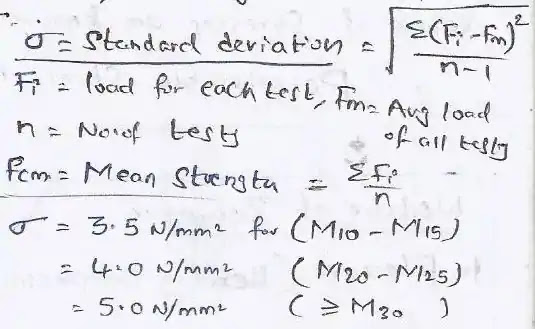 σ = Standard deviation = √Σ(Fi - Fm)² / n-1
Fi = load for each test, Fm = Avg load of all tests
n = No. of tests
Fcm = Mean Strength = ΣFi / n
σ = 3.5 N/mm² for (M10 - M15)
= 4.0 N/mm² (M20 - M25)
= 5.0 N/mm² (≥ M30 )